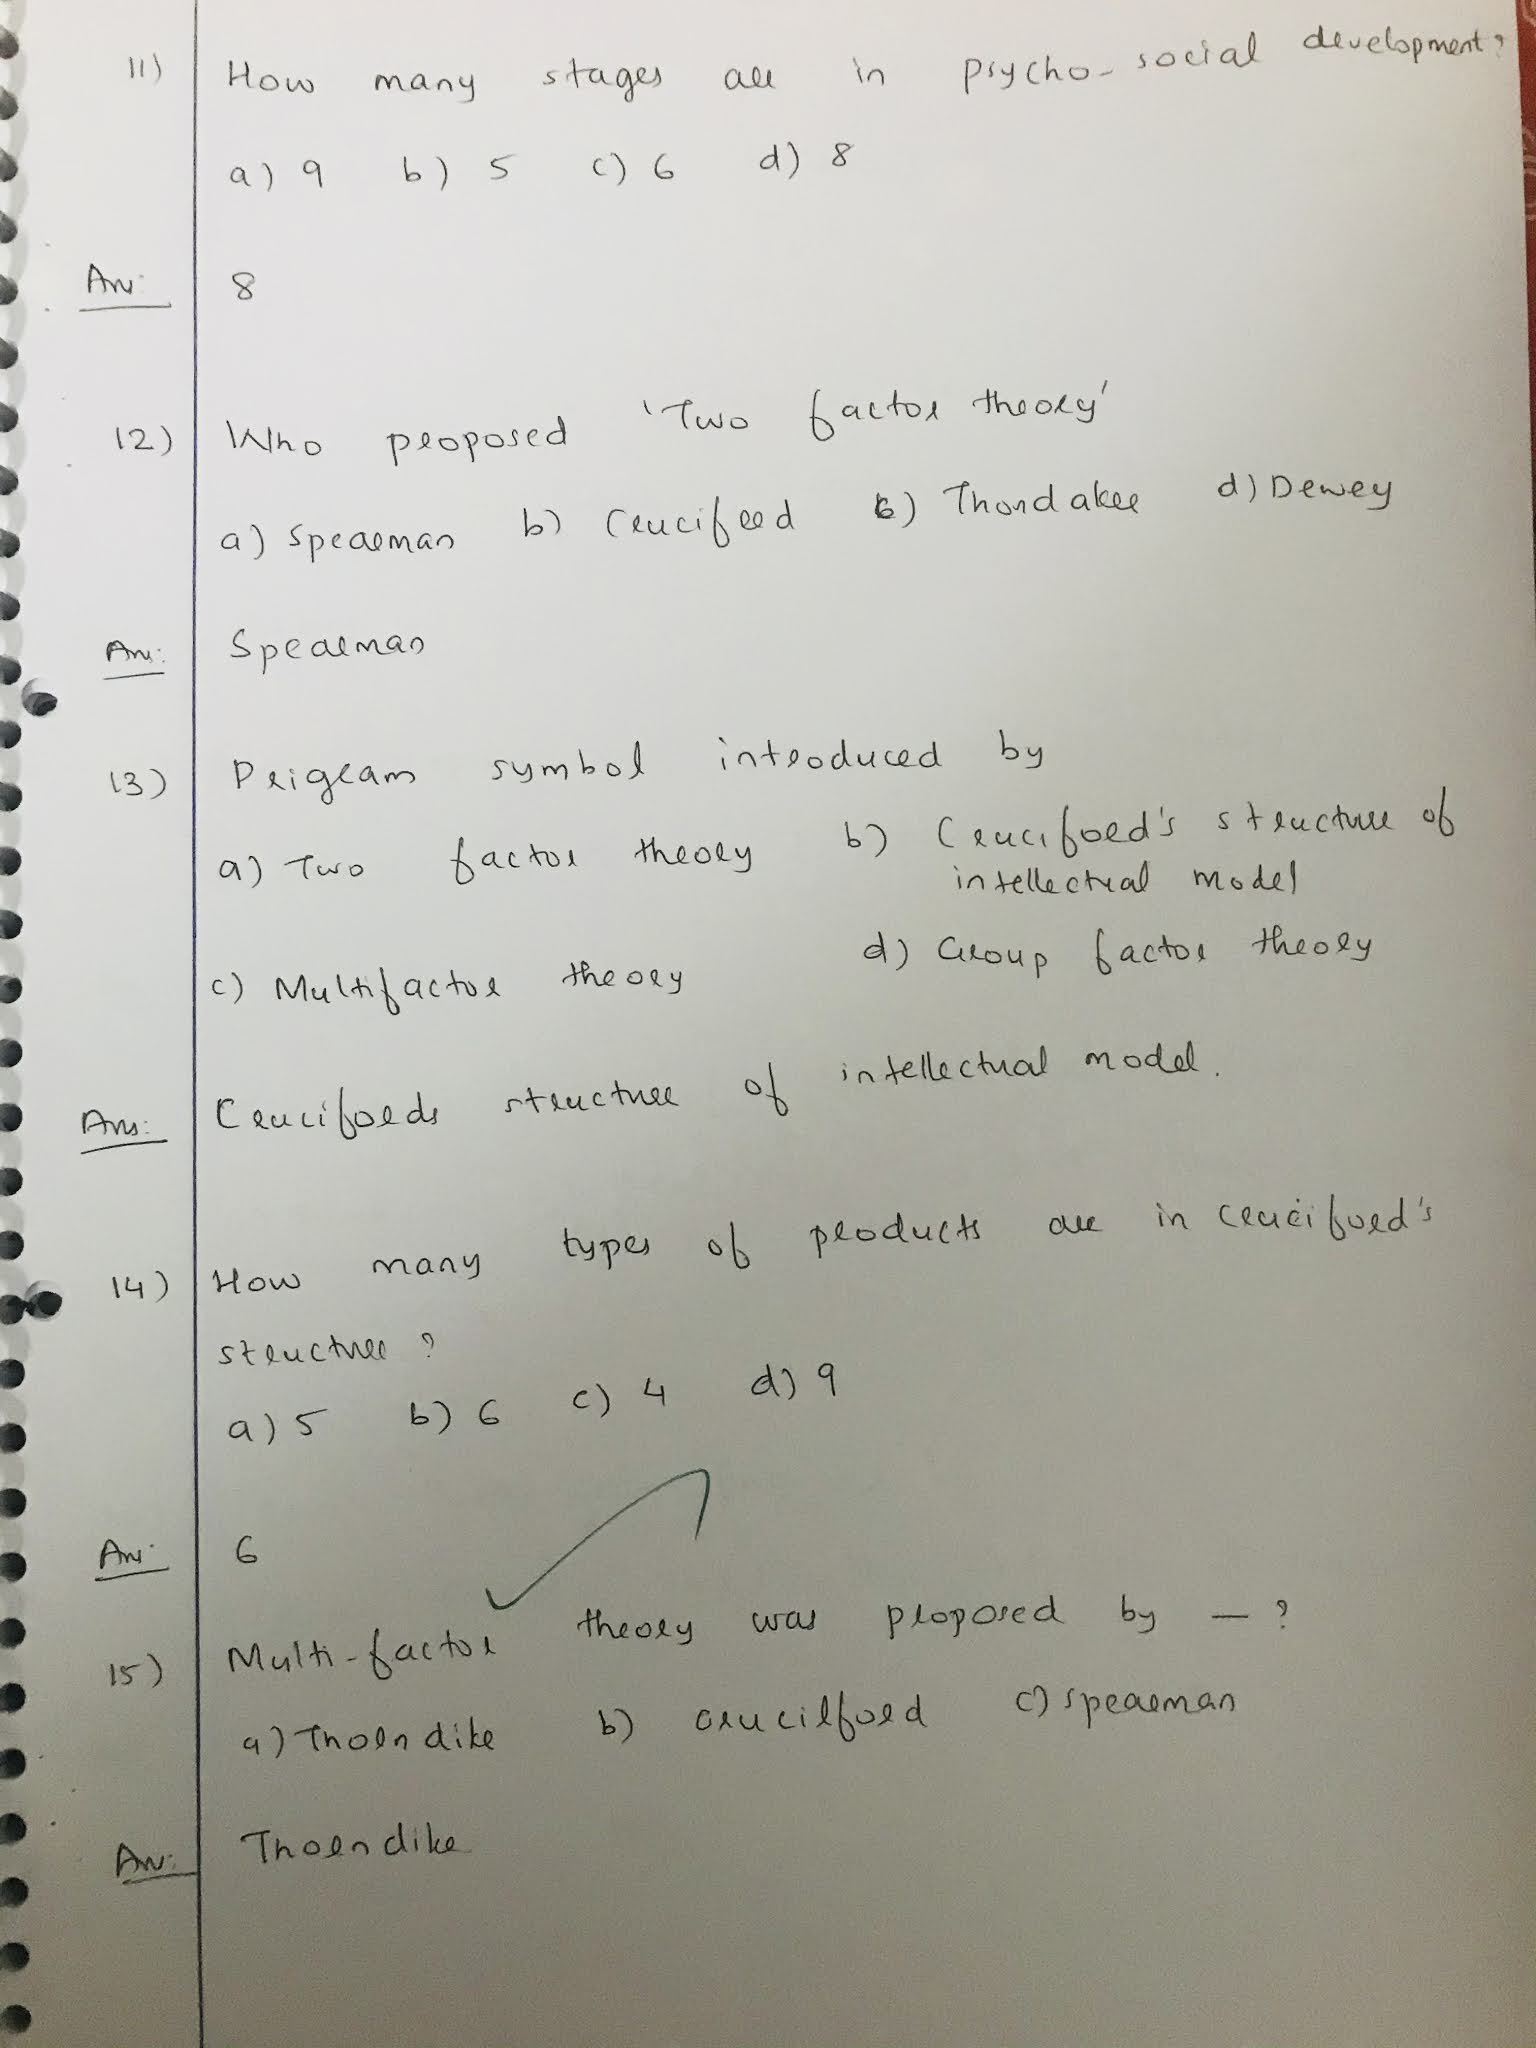 11) How many stages are in psycho-social development?
a) 9 b) 5 c) 6 d) 8
Ans: 8
12) Who proposed 'Two factor theory'
a) Spearman b) Crucifred c) Thondaker d) Dewey
Ans: Spearman
13) Prigram symbol introduced by
a) Two factor theory b) Cruciford's structure of
intellectual model
c) Multifactor theory d) Group factor theory
Ans: Crucifords structure of intellectual model.
14) How many types of products are in cruciford's
structure ?
a) 5 b) 6 c) 4 d) 9
Ans: 6
15) Multi-factor theory was proposed by — ?
a) Thorndike b) crucilford c) spearman
Ans: Thorndike